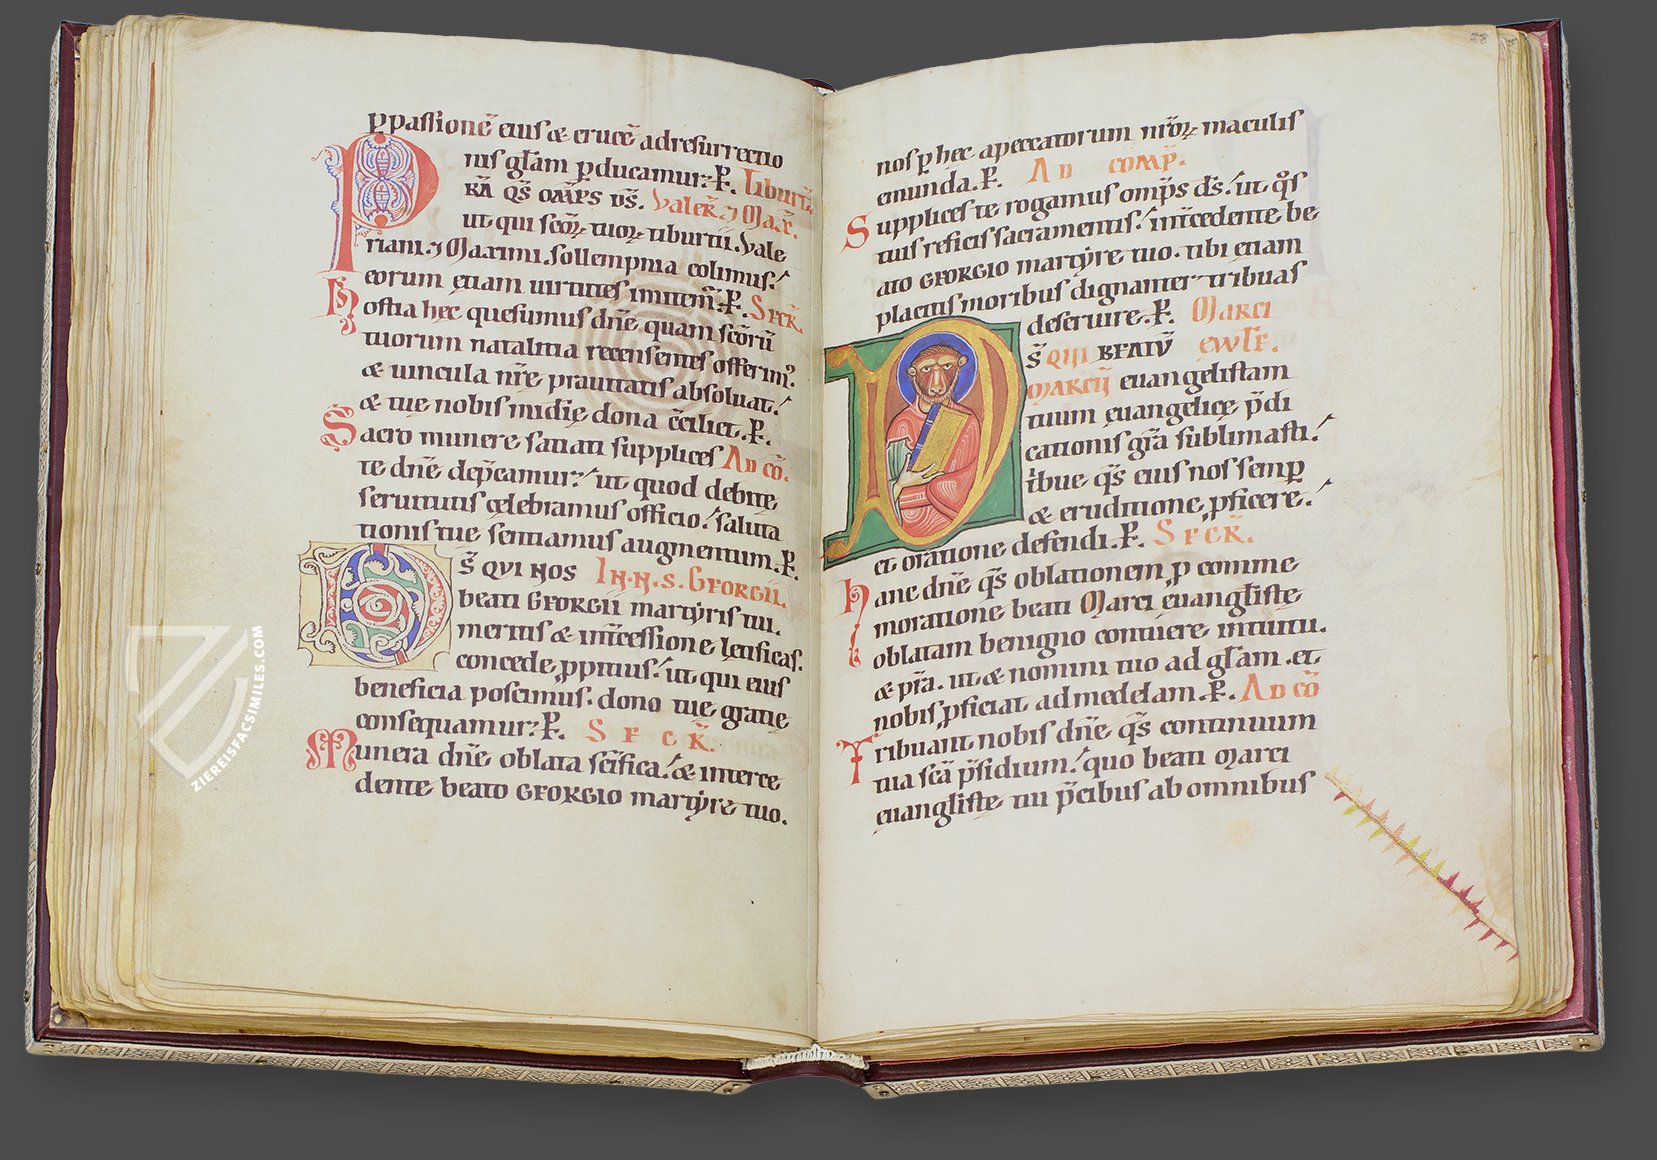 ꝑ passionē eius & crucē ad resurrectio
nis gl̄am ꝑducamur. ꝑ. Tiburtii
P RA̅ QS̄ OM̅PS D̅S̅. Valer̄. ⁊ Max̄.
ut qui sc̄oꝝ tuoꝝ tiburtii. Vale
riani. ⁊ Maximi. sollempnia colimus.
eorum etiam uirtutes imitem̄. ꝑ. SECR̄.
Hostia hec quesumus dn̄e quam sc̄orū
tuorum natalitia recensentes offerim᷒.
& uincula nr̄e prauitatis absoluat.
& tue nobis mīdię dona c̄ciliet. ꝑ.
Sacro munere satiati supplices AD CŌ.
te dn̄e dep̄camur. ut quod debite
seruitutis cęlebramus officio. saluta
tionis tue sentiamus augmentum. ꝑ.
DS̄ QVI NOS IN. N. S. GEORGII.
beati GEORGII martyris tui.
meritis & int̄cessione lętificas.
concede ꝓpitius. ut qui eius
beneficia poscimus. dono tue gratie
consequamur. ꝑ. SECR̄.
Munera dn̄e oblata sc̄ifica. & interce
dente beato GEORGIO martyre tuo.
28
nos ꝑ hec a peccatorum nr̄oꝝ maculis
emunda. ꝑ. AD COMP̄.
Supplices te rogamus omp̄s ds̄. ut q̊s
tuis reficis sacramentis. int̄cedente be
ato GEORGIO martyre tuo. tibi etiam
placitis moribus dignanter tribuas
deseruire. ꝑ. Marci
DS̄ QUI BEATV̄ EWĪE.
MARCU̅ euangelistam
tuum euangelicę p̄di
cationis gr̄a sublimasti.
t̄bue qs̄ eius nos semꝑ
& eruditione ꝓficere.
et oratione defendi. ꝑ. SECR̄.
Hanc dn̄e qs̄ oblationem ꝓ comme
moratione beati Marci euangl̄iste
oblatam benigno contuere intuitu.
& pr̄a. ut & nomini tuo ad gl̄am. et
nobis ꝓficiat ad medelam. ꝑ. AD CŌ
Tribuant nobis dn̄e qs̄ continuum
tua sc̄a p̄sidium. quo beati Marci
euangl̄iste tui p̄cibus ab omnibus
ZIEREISFACSIMILES.COM